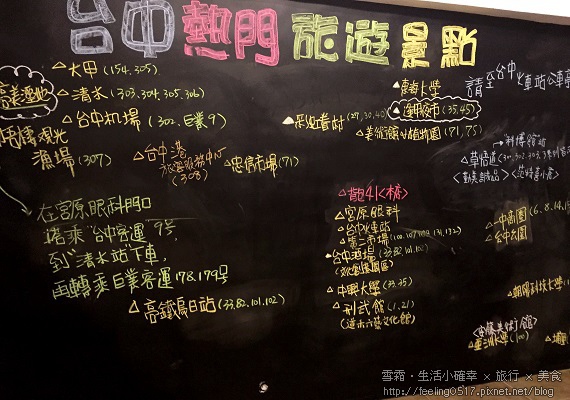 台中熱門旅遊景點
△大甲(154.305)
高美溼地
△清水(303.304.305.306)
△台中机場(302.巨業9)
梧棲觀光
漁場(307)
△台中港
旅遊服務中心
(308)
△忠信市場(71)
在宮原眼科門口
搭乘"台中客運"9号,
到"清水站"下車,
再轉乘巨業客運178.179号
△高鐵烏日站(33.82.101.102)
△彩虹眷村(27,30,40)
△東海大學
△逢甲夜市(35.45)
△美術館
植物園(71,75)
請至台中火車站公車亭
科博館
△草悟道
△宮原眼科
△台中火車站
△第二市場
△台中酒場(33.82.101.102)
(文化創意園區)
△中興大學(33.35)
△刑武館(1.21)
(道禾六藝文化館)
△一中商圈
△台中公園
△亞洲大學(100)
雪霜‧生活小確幸 × 旅行 × 美食
http://feeling0517.pixnet.net/blog